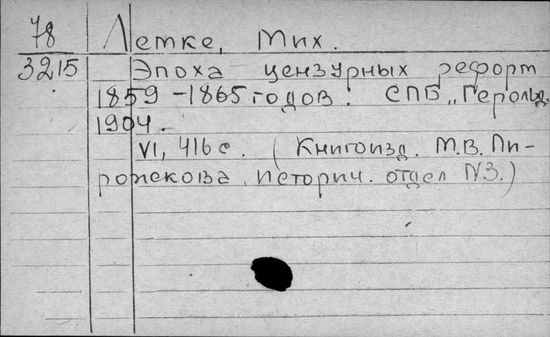 78 Летке, Мих.
3215 Эпоха цензурных рефорт
1859-1865 годов. СПБ „Герольд.
1904.
VI, 416 с. (Книгоизд. М.В. Пи-
рожкова, историч. отдел N3.)